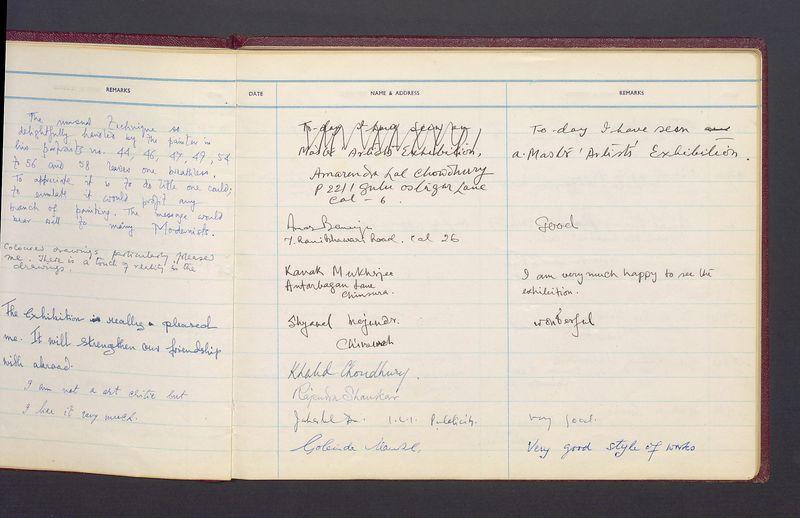 REMARKS
The unusual Technique so
delightfully handled by the painter in
his portraits no. 44, 46, 47, 49, 54
to 56 and 58 leaves one breathless.
To appreciate it is to do little one could;
to emulate it would profit any
branch of painting. The message would
bear well to many Modernists.
Coloured drawings particularly pleased
me. There is a touch of reality in the
drawings.
The Exhibition is really pleased
me. It will strengthen our friendship
with abroad.
I am not a art critic but
I like it very much.
DATE NAME & ADDRESS REMARKS
To-day I have seen an
Master Artists Exhibition,
To-day I have seen
a. Master 'Artists' Exhibition.
Amarendra Lal Chowdhury
P 221/1 Lane
Cal - 6.
Road. Cal 26
Good
Kanak Mukherjee
Antarbagan Lane
Chinsura.
I am very much happy to see the
exhibition.
Shyamal
wonderful
Khalid Choudhury.
Rajendra Shankar
Publicity.
Very good.
Gobinda
Very good style of works